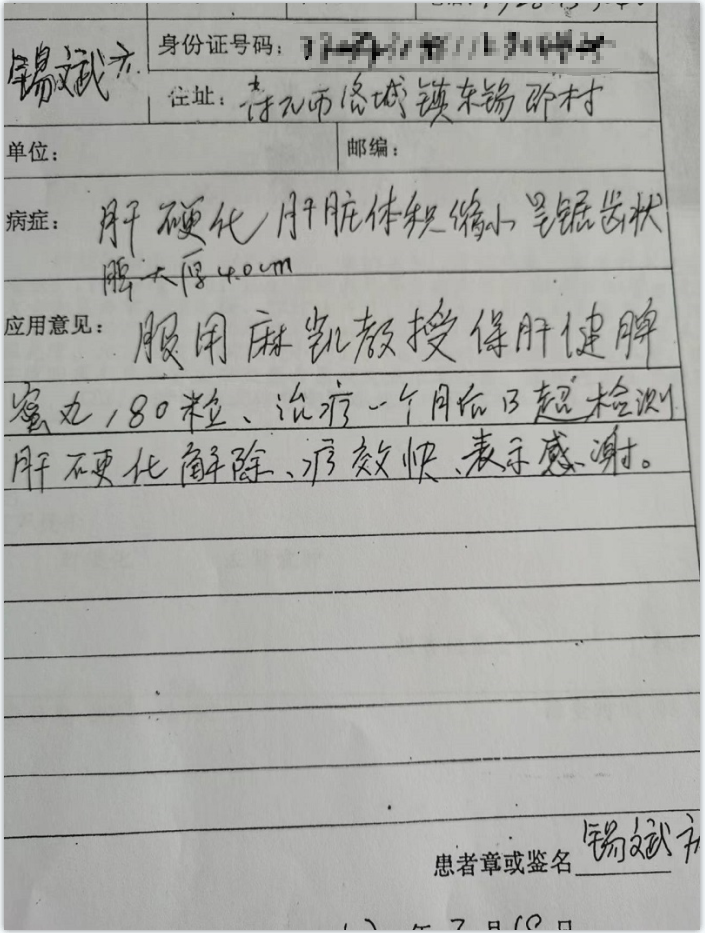 身份证号码:
锡斌
住址: 寿光市洛城镇东锡邵村
单位: 邮编:
病症: 肝硬化 肝脏体积缩小 呈锯齿状
脾大厚4.0cm
应用意见: 服用麻凯教授保肝健脾
蜜丸180粒、治疗一个月后B超检测
肝硬化解除、疗效快、表示感谢。
患者章或签名 锡斌
年 月 日